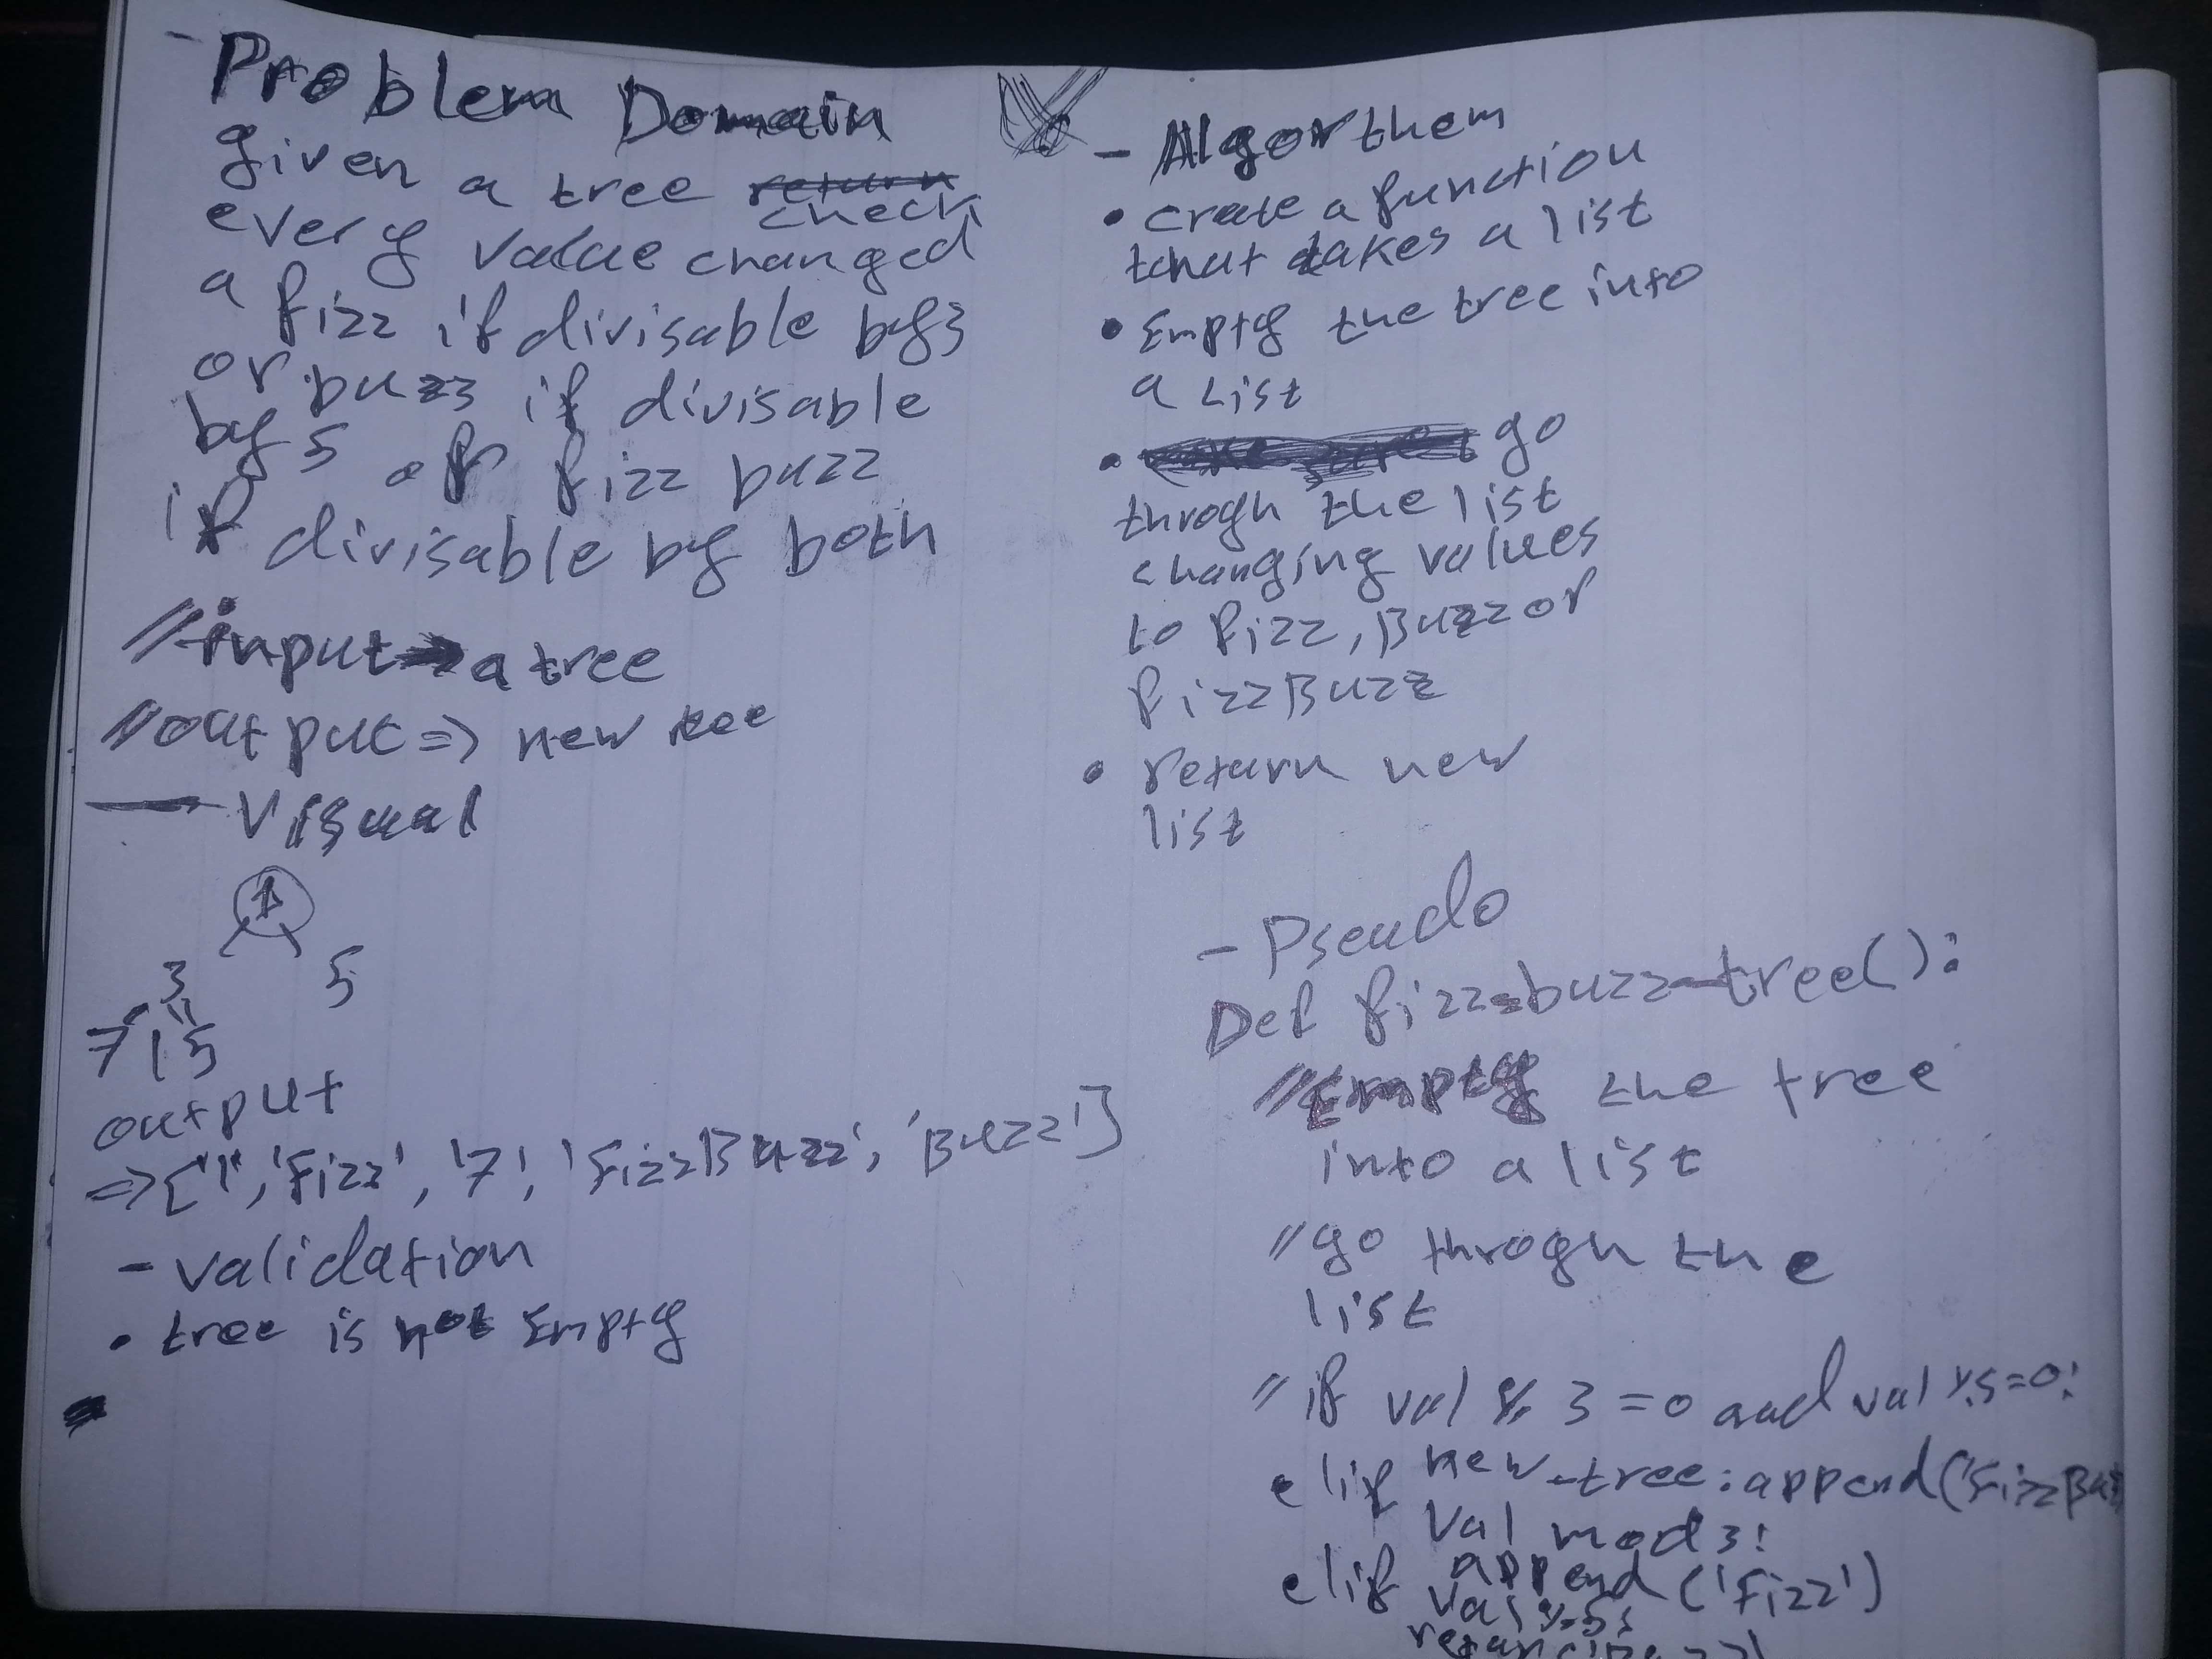 - Problem Domain
given a tree return
check
every value changed
a fizz if divisable by 3
or buzz if divisable
by 5 or fizz buzz
if divisable by both
// input → a tree
// output => new tree
— Visual
1
3 5
7 15
output
=> ['1', 'Fizz', '7', 'FizzBuzz', 'Buzz']
- validation
• tree is not Empty
- Algorthem
• create a function
that takes a list
• Empty the tree into
a List
• go
throgh the list
changing values
to fizz, Buzz or
fizzBuzz
• return new
list
- Pseudo
Def fizz-buzz-tree():
// Empty the tree
into a list
// go throgh the
list
// if val % 3 = 0 and val % 5 = 0:
elif new-tree.append('FizzBu
val mod 3:
elif append ('Fizz')
val % 5: